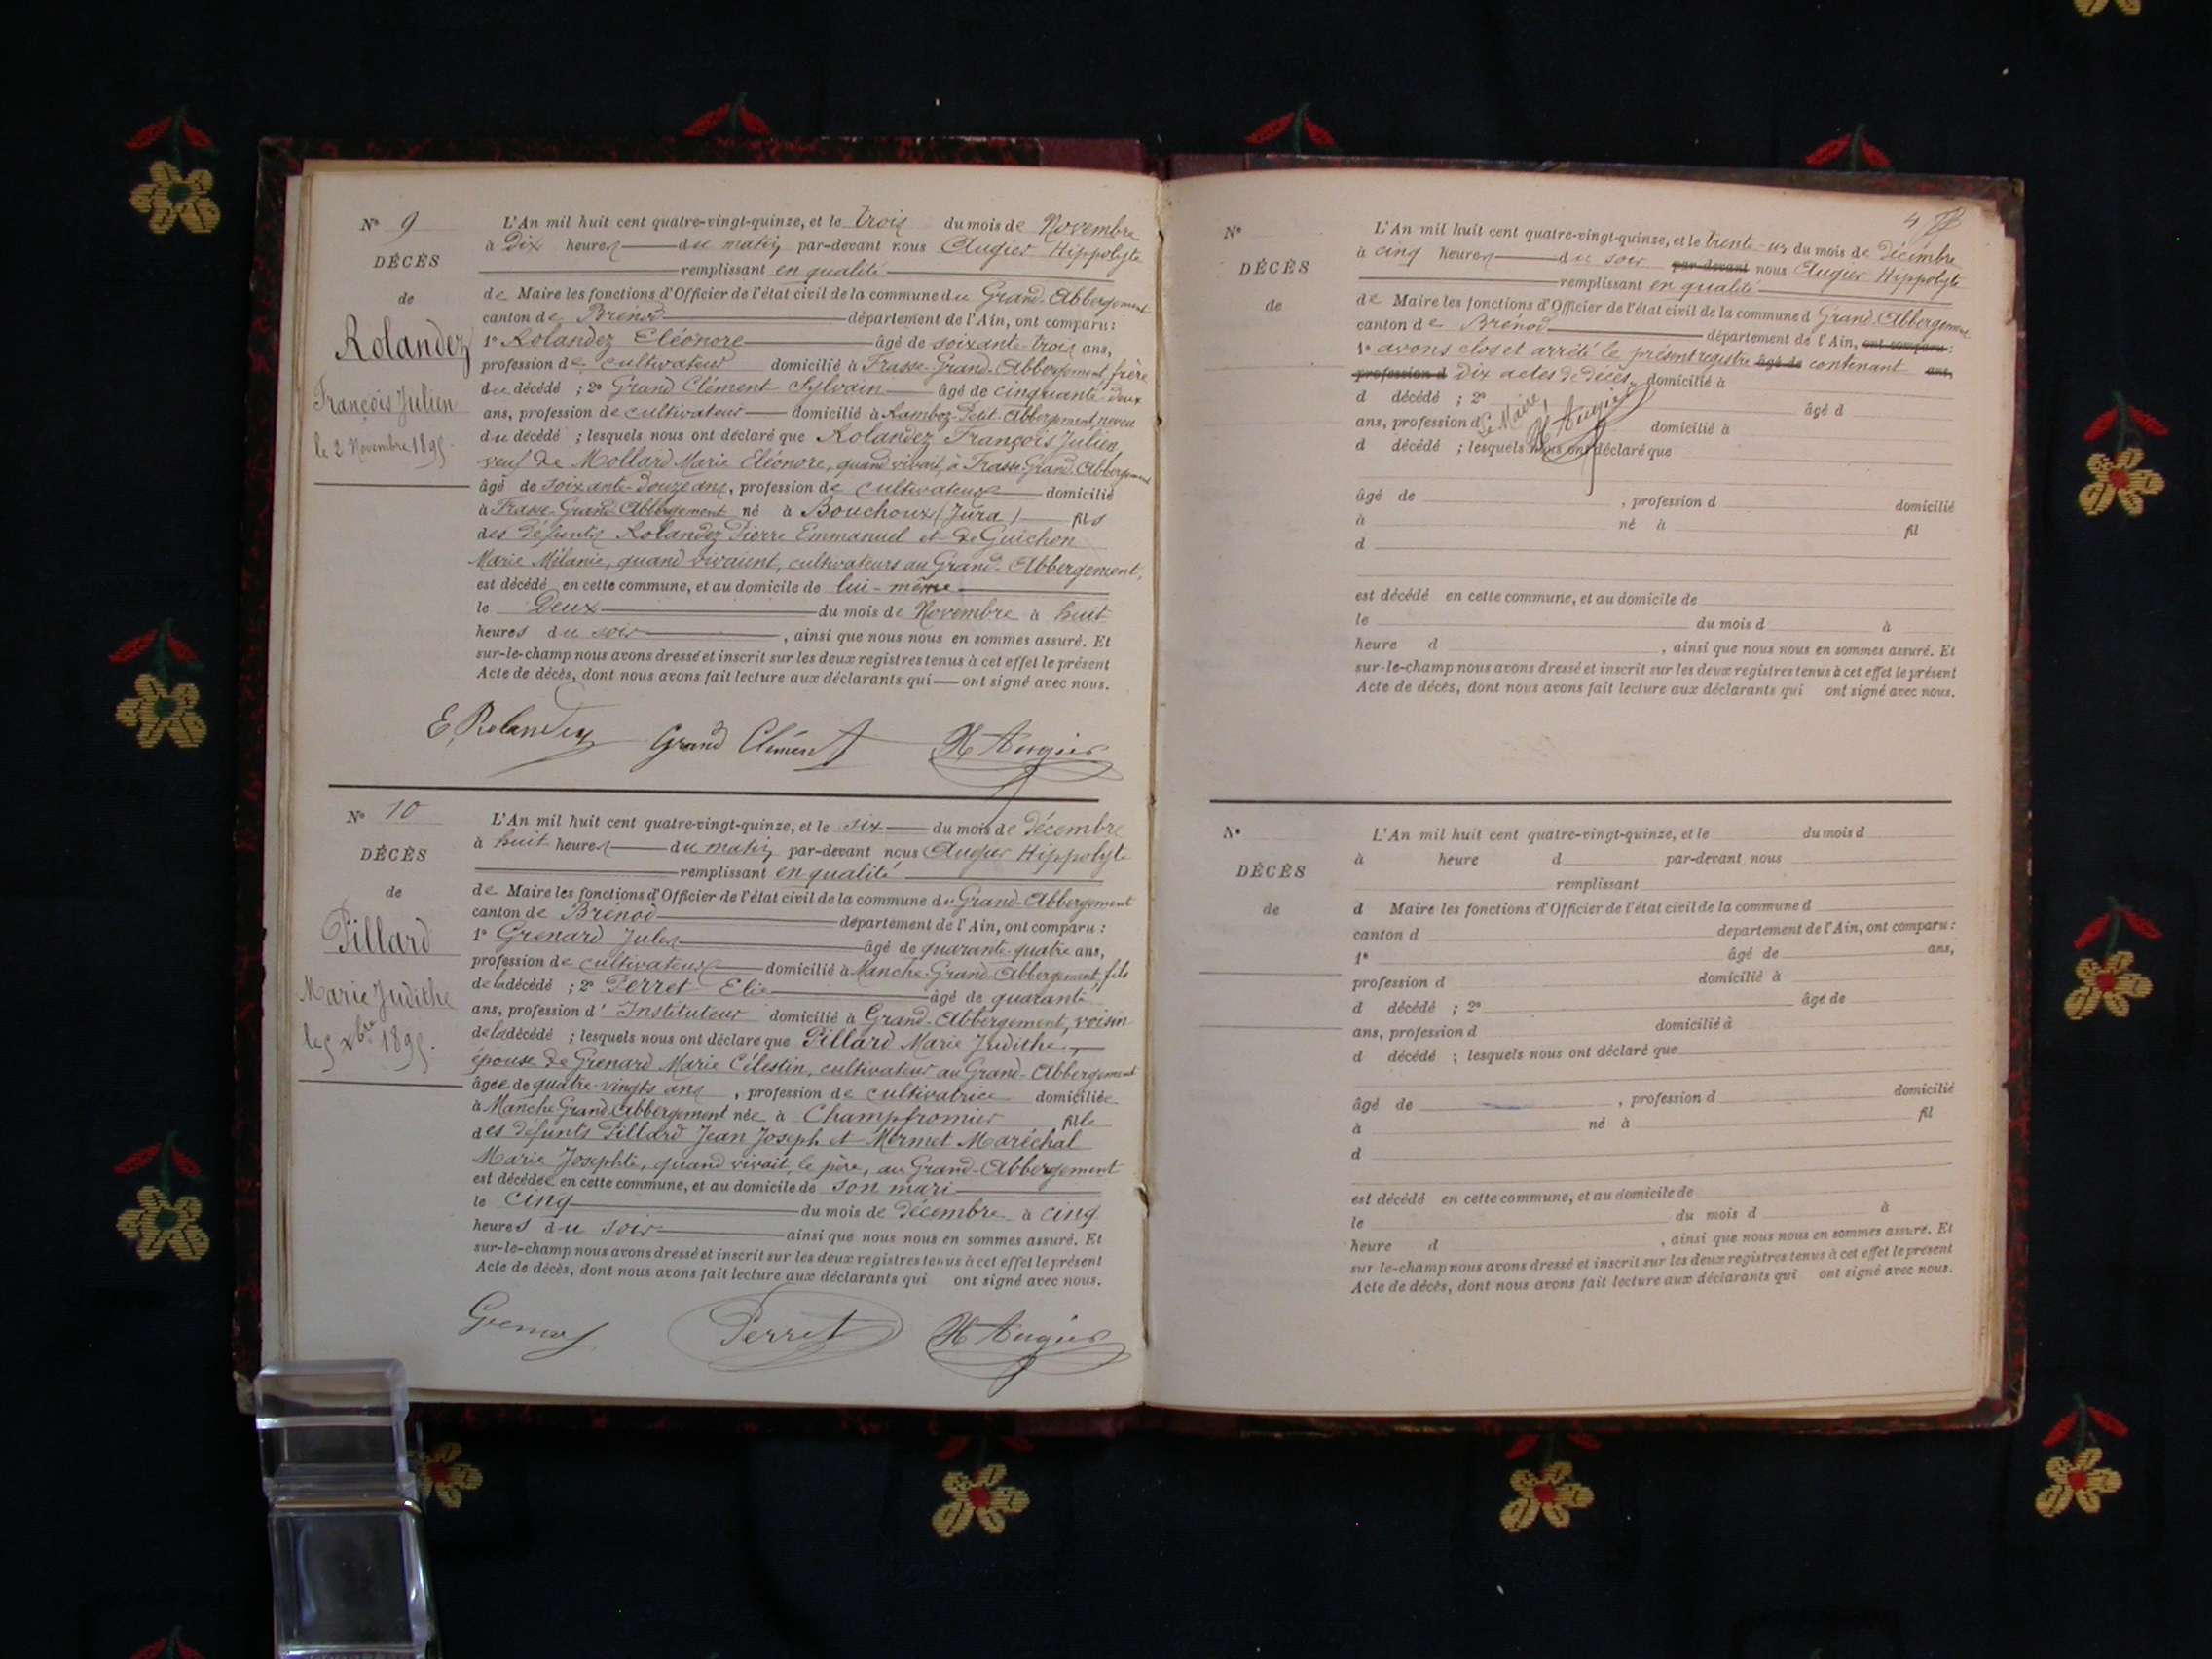 N° 9
DÉCÈS
de
Rolandez
François Julien
le 2 Novembre 1895.
L'An mil huit cent quatre-vingt-quinze, et le trois du mois de Novembre
à Dix heures du matin par-devant nous Augier Hippolyte
remplissant en qualité
de Maire les fonctions d'Officier de l'état civil de la commune du Grand-Abbergement
canton de Brénod département de l'Ain, ont comparu :
1° Rolandez Eléonore âgé de soixante-trois ans,
profession de cultivateur domicilié à Frasse-Grand-Abbergement, frère
du décédé ; 2° Grand Clément Sylvain âgé de cinquante-deux
ans, profession de cultivateur domicilié à Ramboz-Petit-Abbergement, neveu
du décédé ; lesquels nous ont déclaré que Rolandez François Julien
veuf de Mollard Marie Eléonore, quand vivait, à Frasse-Grand-Abbergement
âgé de soixante-douze ans, profession de cultivateur domicilié
à Frasse-Grand-Abbergement né à Bouchoux (Jura) fils
des défunts Rolandez Pierre Emmanuel et de Guichon
Marie Mélanie, quand vivaient, cultivateurs au Grand-Abbergement,
est décédé en cette commune, et au domicile de lui-même
le Deux du mois de Novembre à huit
heures du soir, ainsi que nous nous en sommes assuré. Et
sur-le-champ nous avons dressé et inscrit sur les deux registres tenus à cet effet le présent
Acte de décès, dont nous avons fait lecture aux déclarants qui ont signé avec nous.
E. Rolandez Grand Clément H Augier
N° 10
DÉCÈS
de
Pillard
Marie Judithe
le 5 Xbre 1895.
L'An mil huit cent quatre-vingt-quinze, et le six du mois de Décembre
à huit heures du matin par-devant nous Augier Hippolyte
remplissant en qualité
de Maire les fonctions d'Officier de l'état civil de la commune du Grand-Abbergement
canton de Brénod département de l'Ain, ont comparu :
1° Grenard Jules âgé de quarante-quatre ans,
profession de cultivateur domicilié à Manche-Grand-Abbergement, fils
de la décédé ; 2° Perret Elie âgé de quarante
ans, profession d'Instituteur domicilié à Grand-Abbergement, voisin
de la décédé ; lesquels nous ont déclaré que Pillard Marie Judithe,
épouse de Grenard Marie Célestin, cultivateur au Grand-Abbergement
âgée de quatre-vingts ans, profession de cultivatrice domiciliée
à Manche Grand-Abbergement née à Champfromier fille
des défunts Pillard Jean Joseph et Mermet Maréchal
Marie Josephte, quand vivait, le père, au Grand-Abbergement
est décédée en cette commune, et au domicile de son mari
le Cinq du mois de Décembre à cinq
heures du soir ainsi que nous nous en sommes assuré. Et
sur-le-champ nous avons dressé et inscrit sur les deux registres tenus à cet effet le présent
Acte de décès, dont nous avons fait lecture aux déclarants qui ont signé avec nous.
Grenard Perret H Augier
4
N°
DÉCÈS
de
L'An mil huit cent quatre-vingt-quinze, et le trente-un du mois de Décembre
à cinq heures du soir par-devant nous Augier Hippolyte
remplissant en qualité
de Maire les fonctions d'Officier de l'état civil de la commune d Grand-Abbergement
canton de Brénod département de l'Ain, ont comparu :
1° avons clos et arrêté le présent registre âgé de contenant ans,
profession d Dix actes de décès. domicilié à
d décédé ; 2° âgé d
ans, profession d Le Maire, domicilié à
H Augier
d décédé ; lesquels nous ont déclaré que
âgé de , profession d domicilié
à né à fil
d
est décédé en cette commune, et au domicile de
le du mois d à
heure d , ainsi que nous nous en sommes assuré. Et
sur-le-champ nous avons dressé et inscrit sur les deux registres tenus à cet effet le présent
Acte de décès, dont nous avons fait lecture aux déclarants qui ont signé avec nous.
N°
DÉCÈS
de
L'An mil huit cent quatre-vingt-quinze, et le du mois d
à heure d par-devant nous
remplissant
d Maire les fonctions d'Officier de l'état civil de la commune d
canton d département de l'Ain, ont comparu :
1° âgé de ans,
profession d domicilié à
d décédé ; 2° âgé de
ans, profession d domicilié à
d décédé ; lesquels nous ont déclaré que
âgé de , profession d domicilié
à né à fil
d
est décédé en cette commune, et au domicile de
le du mois d à
heure d , ainsi que nous nous en sommes assuré. Et
sur le-champ nous avons dressé et inscrit sur les deux registres tenus à cet effet le présent
Acte de décès, dont nous avons fait lecture aux déclarants qui ont signé avec nous.